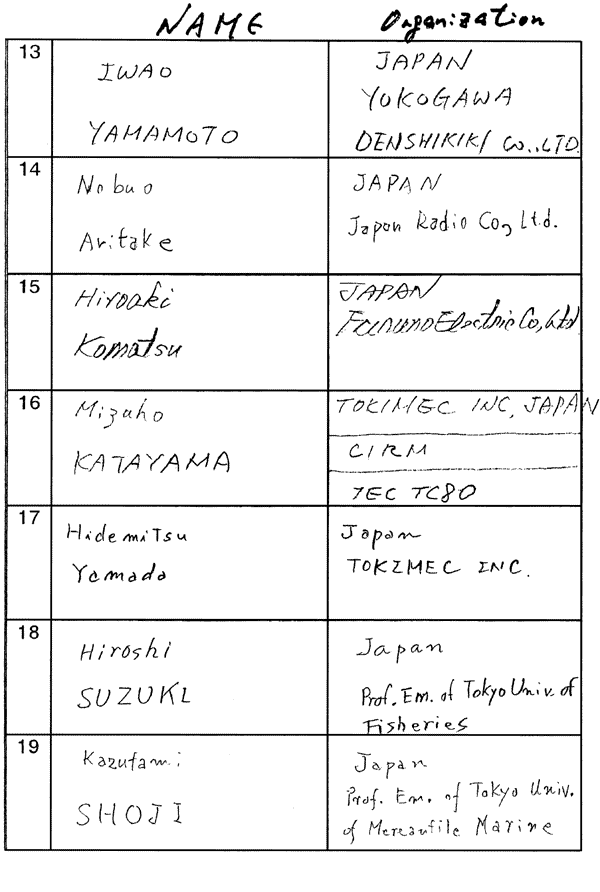 NAME Organization
13
IWAO
YAMAMOTO
JAPAN
YOKOGAWA
DENSHIKIKI CO.,LTD.
14
Nobuo
Aritake
JAPAN
Japan Radio Co, Ltd.
15
Hiroaki
Komatsu
JAPAN
Furuno Electric Co, Ltd
16
Mizuho
KATAYAMA
TOKIMEC INC, JAPAN
CIRM
IEC TC80
17
HidemiTsu
Yamada
Japan
TOKIMEC INC.
18
Hiroshi
SUZUKI
Japan
Prof. Em. of Tokyo Univ. of
Fisheries
19
Kazufami
SHOJI
Japan
Prof. Em. of Tokyo Univ.
of Mercantile Marine